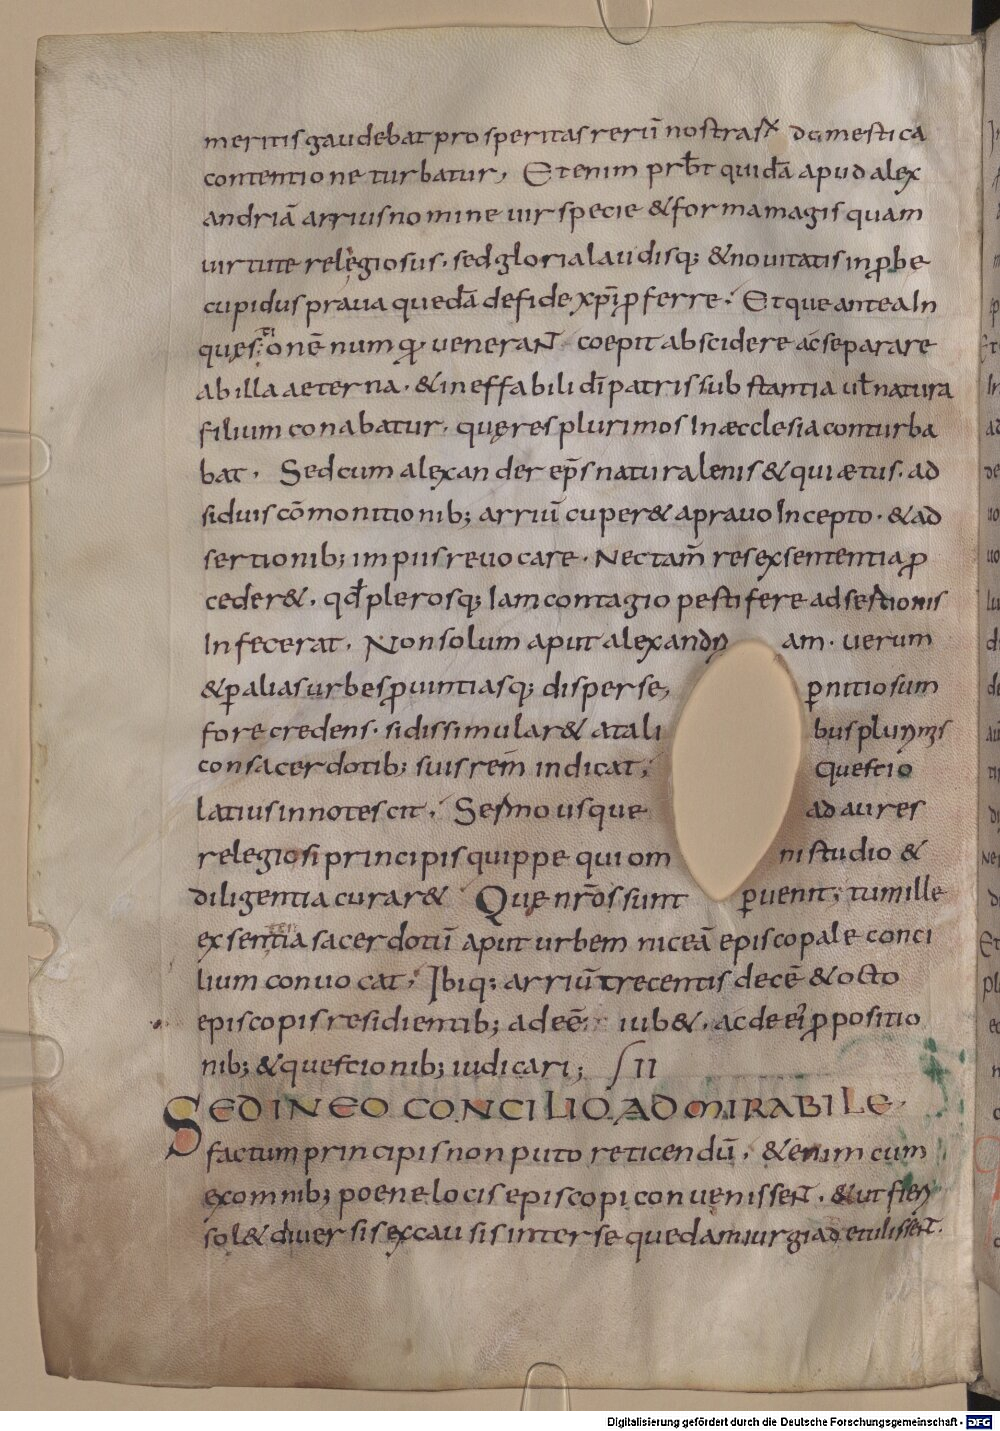 meritis gaudebat prosperitas rerū nostras domestica
contentione turbatur, Et enim prbt quidā apud alex
andriā arrius nomine uir specie & forma magis quam
uirtute relegiosus. sed gloria laudisq; & nouitatis inprobe
cupidus praua quedā de fide xpi pferre. Et que antea In
quęstionē numq uenerant coepit abscidere ac separare
ab illa aeterna. & ineffabili dī patris substantia uł natura
filium conabatur. quę res plurimos In æcclesia conturba
bat. Sed cum alexander eps natura lenis & quiætus. ad
siduis cōmonitionib; arriū cuper& aprauo Incepto. & ad
sertionib; impiis reuocare. Nec tam res ex sententia p
ceder&. qđ plerosq; Iam contagio pestifere adsestionis
Infecerat. Non solum aput alexandri am. uerum
& palias urbes puintiasq; disperse, pnitiosum
fore credens. si dissimular& atali bus plurimis
consacerdotib; suis rem indicat. Quescio
latius innotescit. Sermo usque ad aures
relegiosi principis quippe qui om ni studio &
diligentia curar& Que nros sunt puenit; tum ille
ex sententia sacerdotū aput urbem niceā episcopale conci
lium conuocat. Ibiq; arriū trecentis decē & octo
episcopis residientib; adeē iub&. ac de ei ppositio
nib; & quescionib; iudicari; II
SED IN EO CONCILIO ADMIRABILE
factum principis non puto reticendū. & enim cum
ex omnib; poene locis episcopi conuenissent. & ut fieri
sol& diuersis ex causis inter se quedam iurgia detulissent.
Digitalisierung gefördert durch die Deutsche Forschungsgemeinschaft - DFG